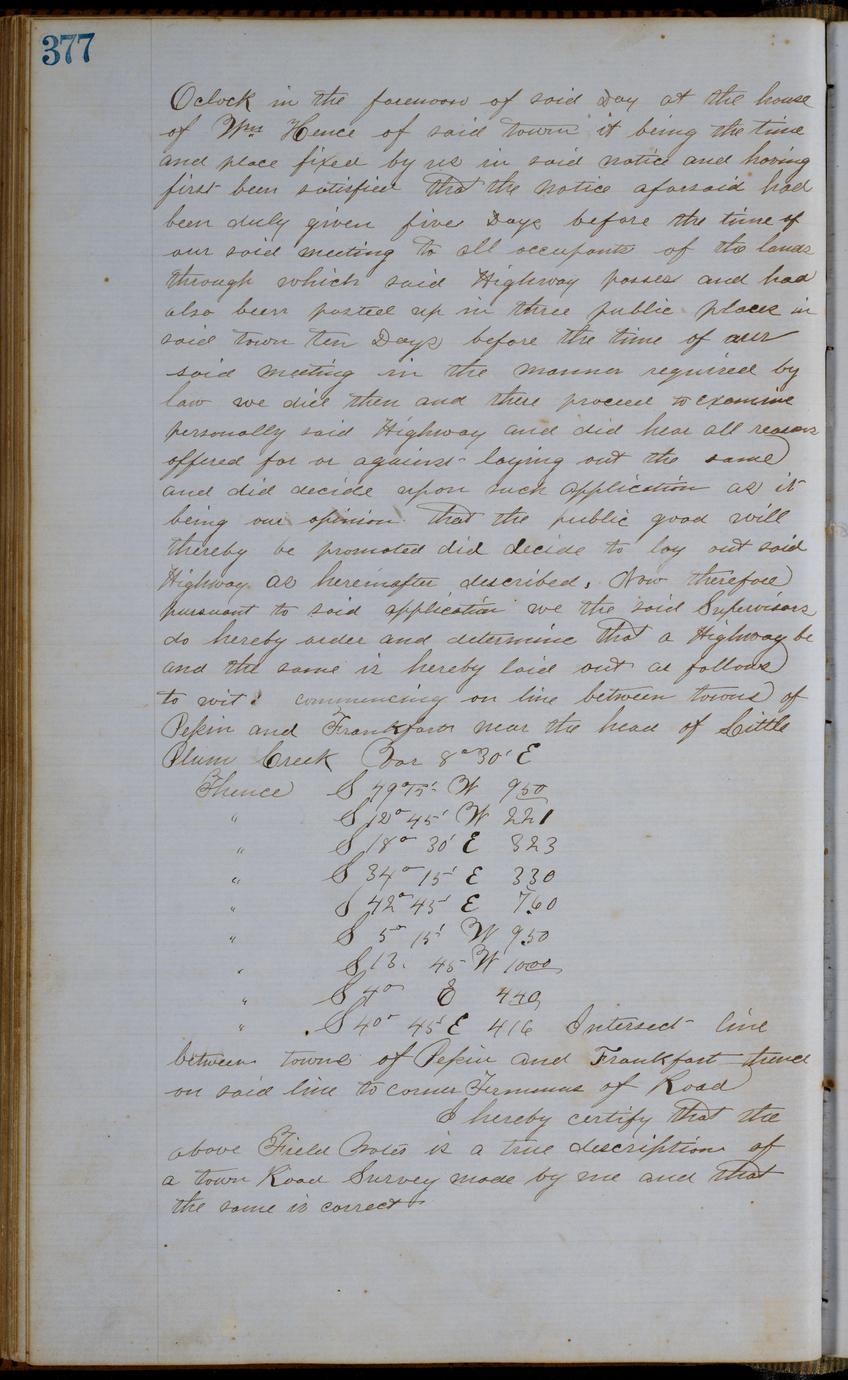 377
Oclock in the forenoon of said Day at the house
of Wm Hence of said town it being the time
and place fixed by us in said notice and having
first been satisfied that the notice aforsaid had
been duly given five Days before the time of
our said meeting to all occupants of the lands
through which said Highway passes and had
also been posted up in three public places in
said town ten Days before the time of our
said meeting in the manner required by
law we did then and there proceed to examine
personally said Highway and did hear all reasons
offered for or against laying out the same
and did decide upon such application as it
being our opinion that the public good will
thereby be promoted did decide to lay out said
Highway as hereinafter described, Now therefore
pursuant to said application we the said Supervisors
do hereby order and determine that a Highway be
and the same is hereby laid out as follows
to wit: commencing on line between towns of
Pepin and Frankfort near the head of Little
Plum Creek Var 8° 30' E
Thence S 79° 15' W 950
" S 12° 45' W 221
" S 18° 30' E 323
" S 34° 15' E 330
" S 42° 45' E 760
" S 5° 15' W 950
" S 13. 45 W 1000
" S 4° E 440
" S 40° 45' E 416 Intersect line
between towns of Pepin and Frankfort thence
on said line to corner Terminus of Road
I hereby certify that the
above Field Notes is a true description of
a town Road Survey made by me and that
the same is correct